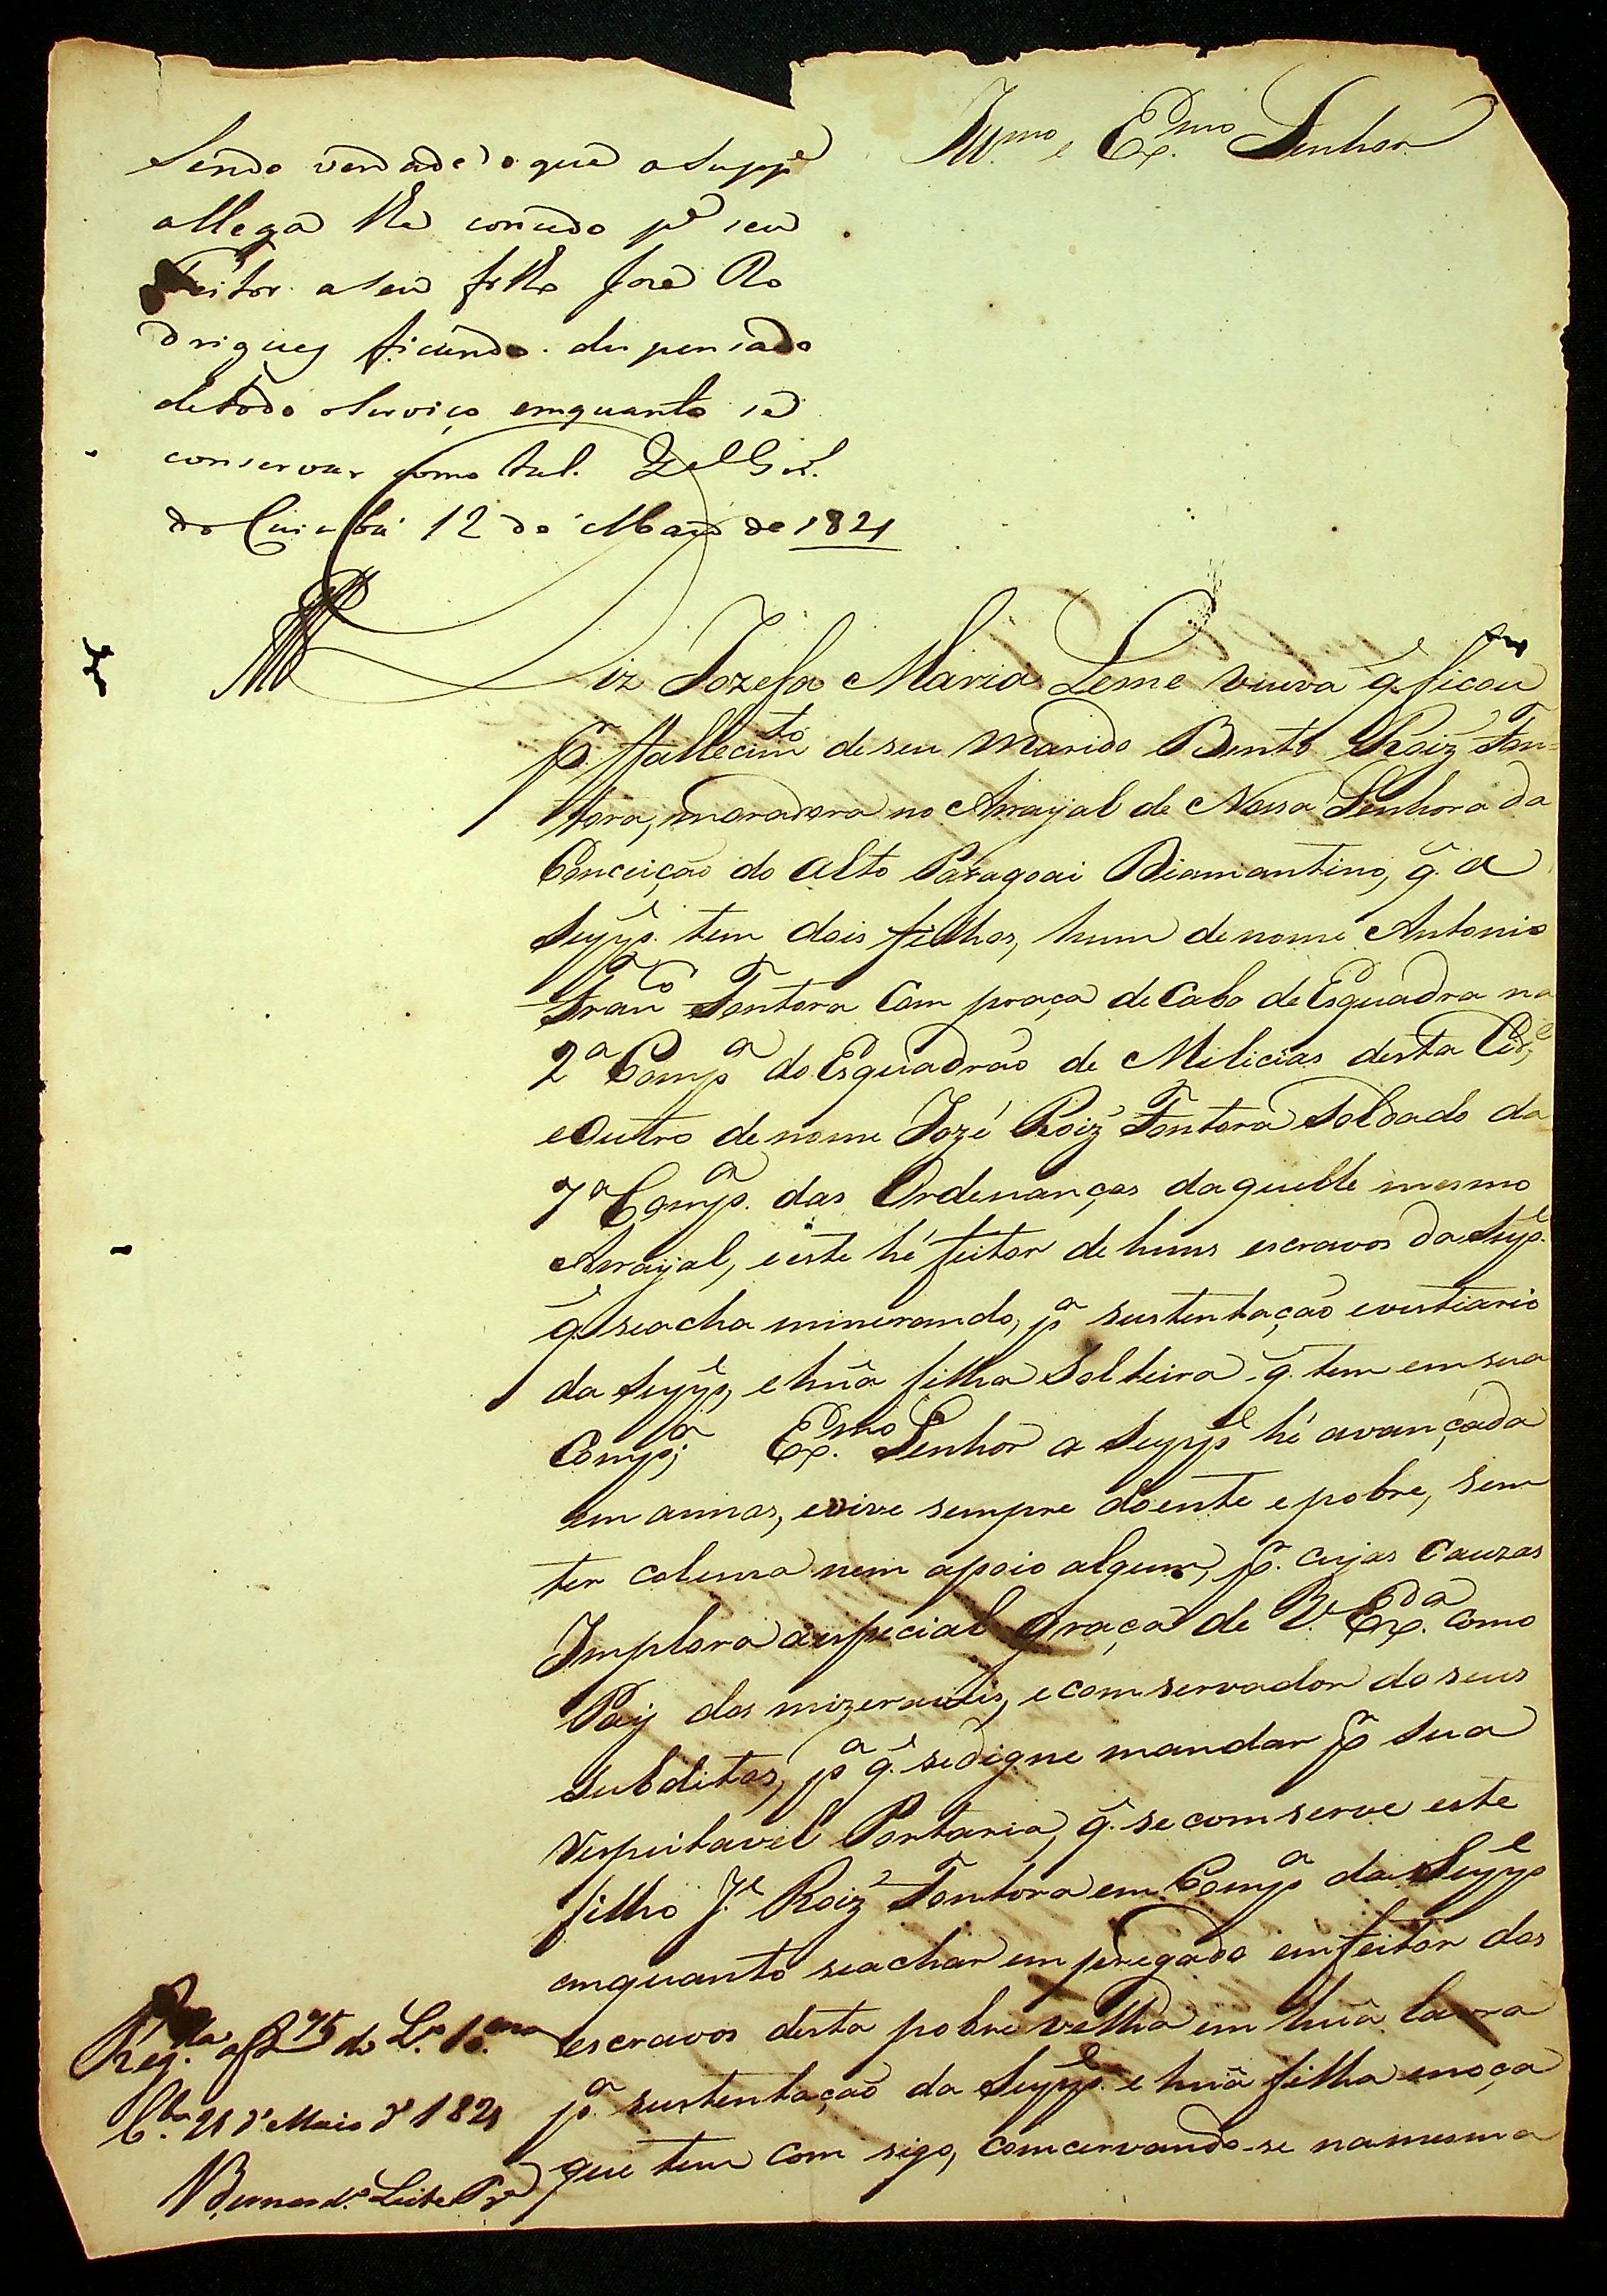 Ill.mo e Ex.mo Senhor
Sendo verdade o que a Supp.e
allega lhe concedo p.a seu
Feitor a seu filho José Ro
drigues ficando dispensado
de todo o Serviço emquanto se
conservar como tal. Q.el G.al
do Cuiabá 12 de Maio de 1821
Diz Jozefa Maria Leme viuva q̃ ficou
p.r fallecim.to de seu marido Bento Roiz' Fon=
tora, moradora no Arrayal de Nossa Senhora da
Conceição do Alto Paragoai Diamantino, q̃. a
Supp.e tem dois filhos, hum de nome Antonio
Fran.co Fontora Com praça de Cabo de Esquadra na
2ª Comp.a do Esquadrão de Milicias desta Cid.e,
e Outro de nome Jozé Roiz' Fontora Soldado da
7ª Comp.a das Ordenanças daquelle mesmo
Arrayal, e este hé feitor de huns escravos da Sup.e
q̃ se acha minerando, p.a sustentação e vestiario
da Supp.e, e huã filha Solteira q̃. tem em sua
Comp.a; Ex.mo Senhor a Supp.e hé avançada
em annos, e vive sempre doente e pobre, sem
ter coluna nem apoio algum, p.r cujas Cauzas
Implora a especial graça de V. Ex.ca como
Pay dos mizeraveis, e comservador do seus
Subditos, p.a q̃. se digne mandar p.r Sua
respeitavel Portaria, q̃. se comserve este
filho J.e Roiz' Fontora em Comp.a da Supp.e
emquanto se achar empregado em feitor dos
escravos desta pobre velha em huã lavra
p.a sustentação da Supp.e e huã filha moça
que tem com sigo, comcervando-se na mesma
Reg.da a f 95 do L.o 1.
C.bá 21 d' Maio d' 1821
Bernard.o Leite Pr.a